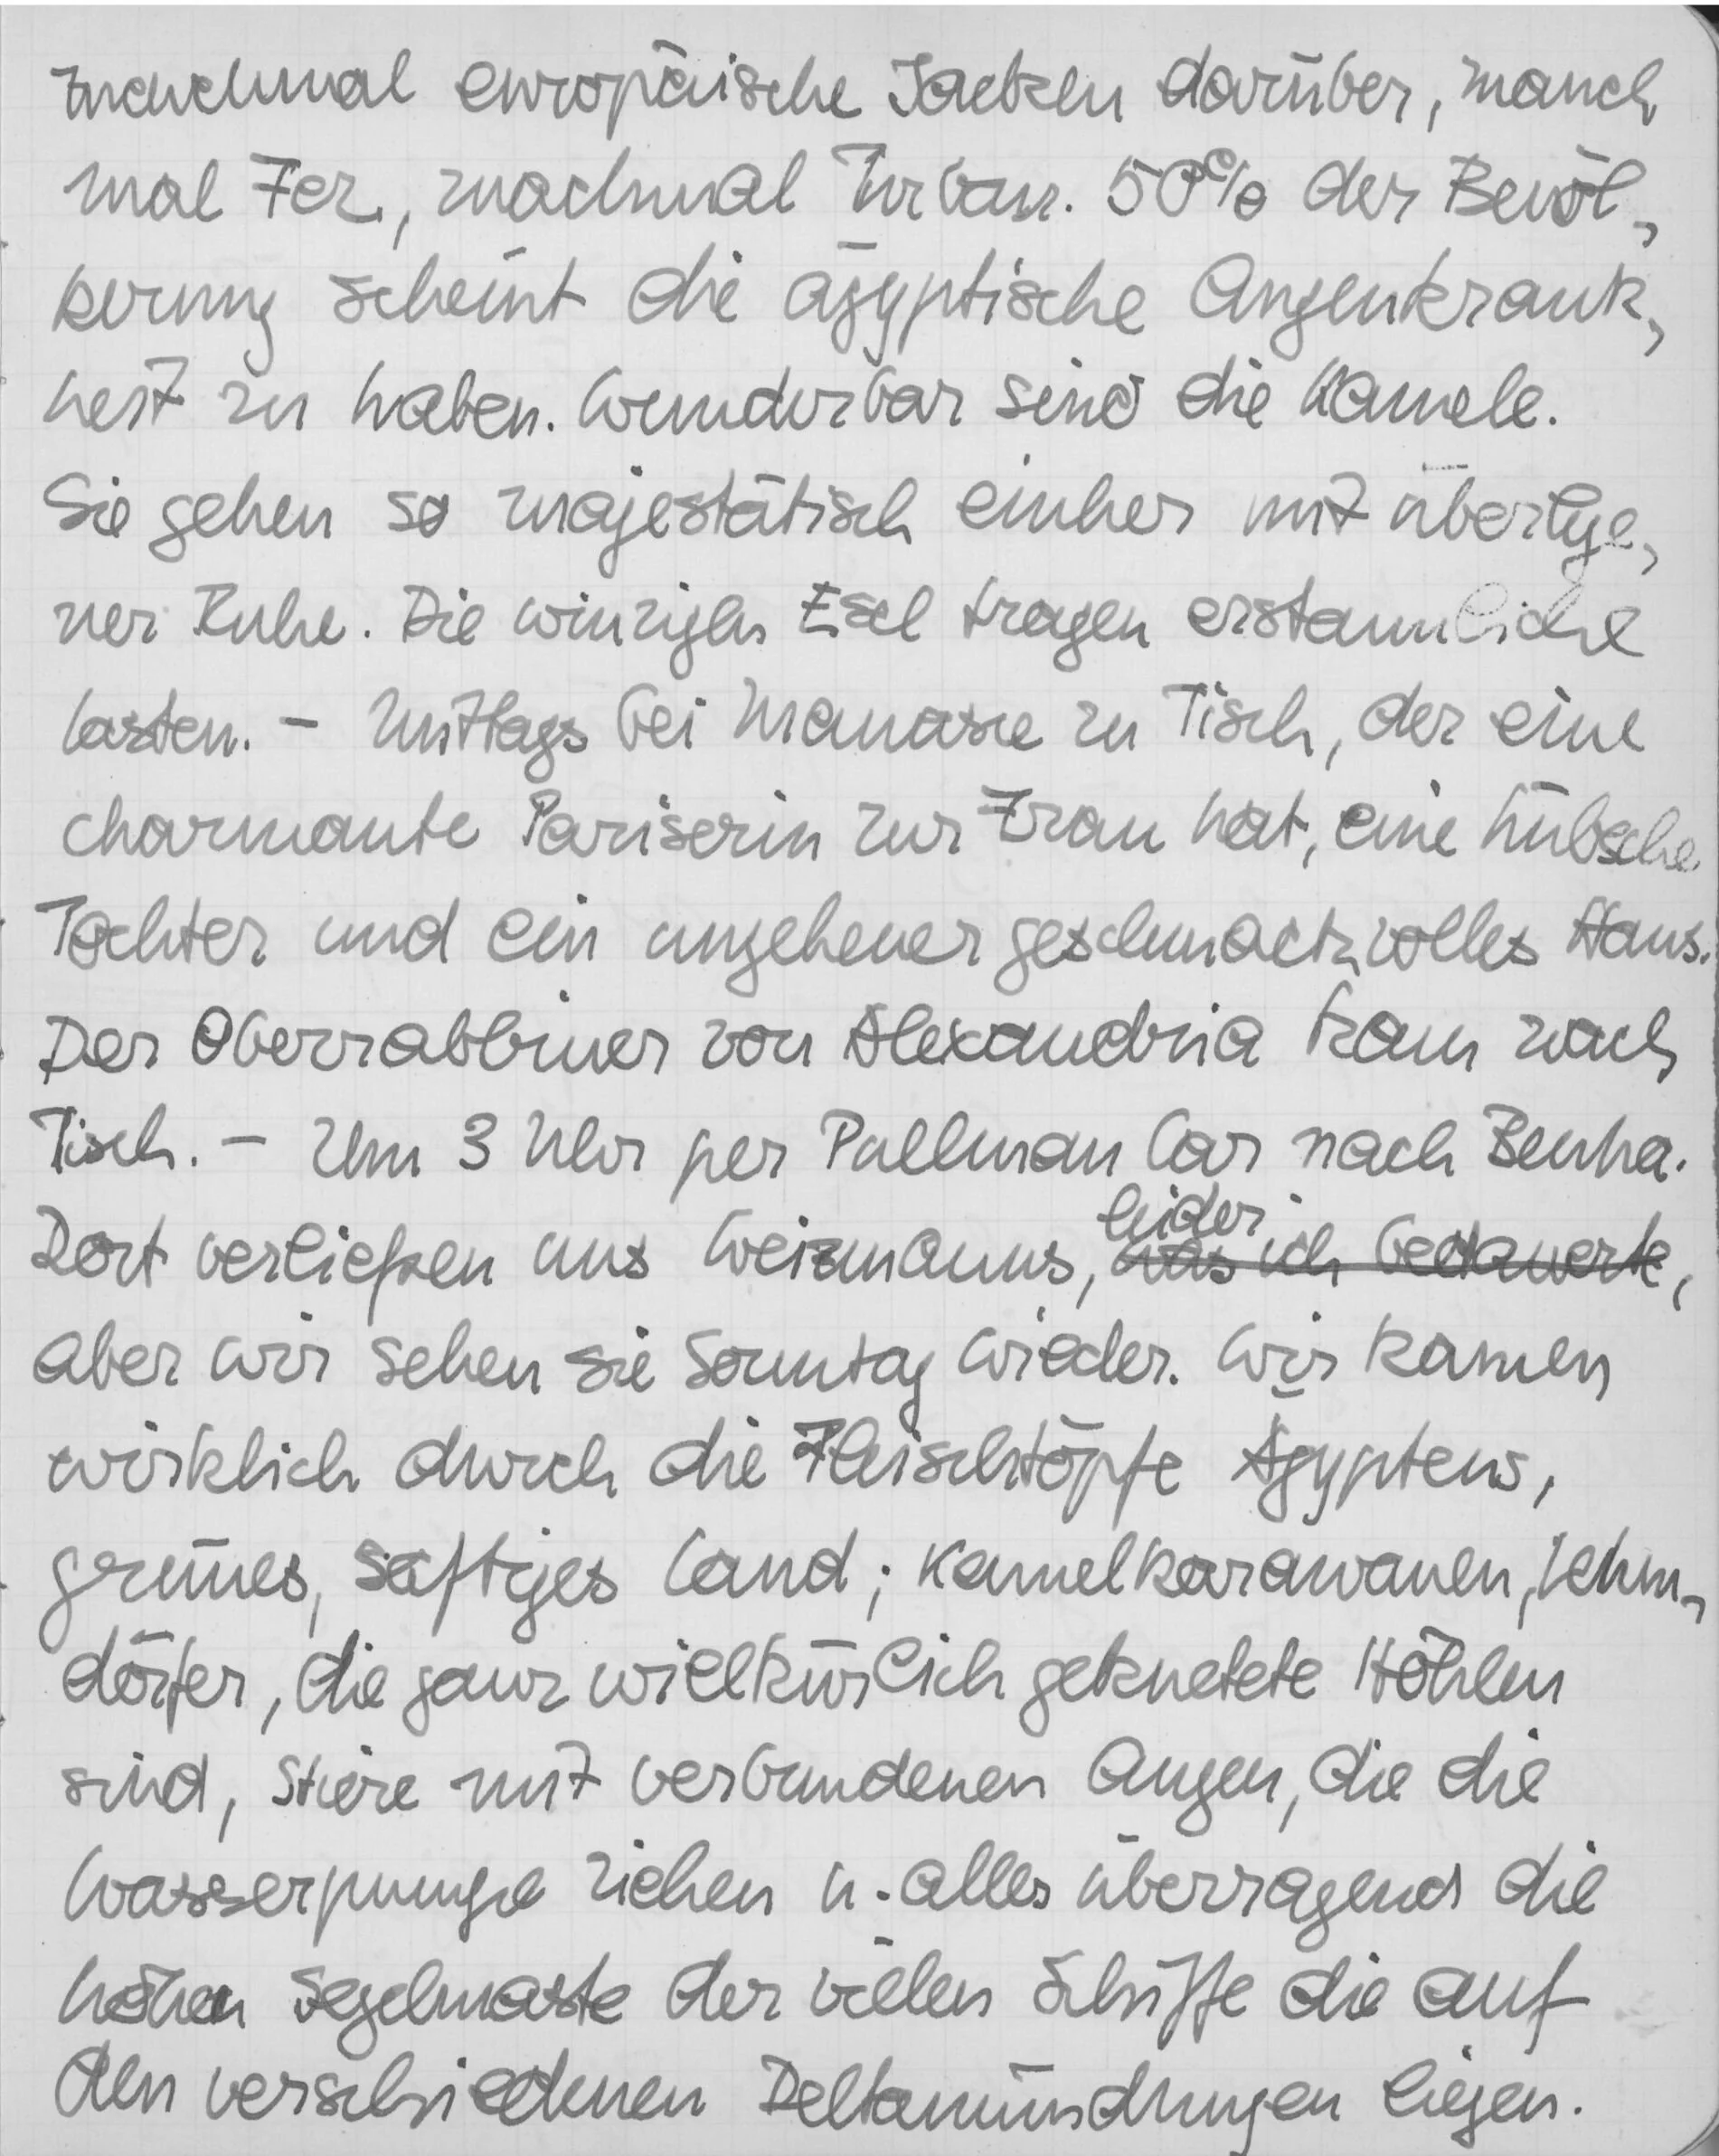 manchmal europäische Jacken darüber, manch
mal Fez, machmal Turban. 50% der Bevöl-
kerung scheint die ägyptische Augenkrank-
heit zu haben. Wunderbar sind die Kamele.
Sie gehen so majestätisch einher mit überlege-
ner Ruhe. Die winzigen Esel tragen erstaunliche
Lasten. – Mittags bei Manasse zu Tisch, der eine
charmante Pariserin zur Frau hat, eine hübsche
Tochter und ein ungeheuer geschmackvolles Haus.
Der Oberrabbiner von Alexandria kam nach
Tisch. – Um 3 Uhr per Pullman Car nach Benha.
leider
Dort verließen uns Weizmanns, was ich bedauerte,
aber wir sehen sie Sonntag wieder. Wir kamen
wirklich durch die Fleischtöpfe Ägyptens,
grünes, saftiges Land; Kamelkarawanen, Lehm-
dörfer, die ganz willkürlich geknetete Höhlen
sind, Stiere mit verbundenen Augen, die die
Wasserpumpe ziehen u. alles überragend die
hohen Segelmaste der vielen Schiffe die auf
den verschiedenen Deltamündungen liegen.